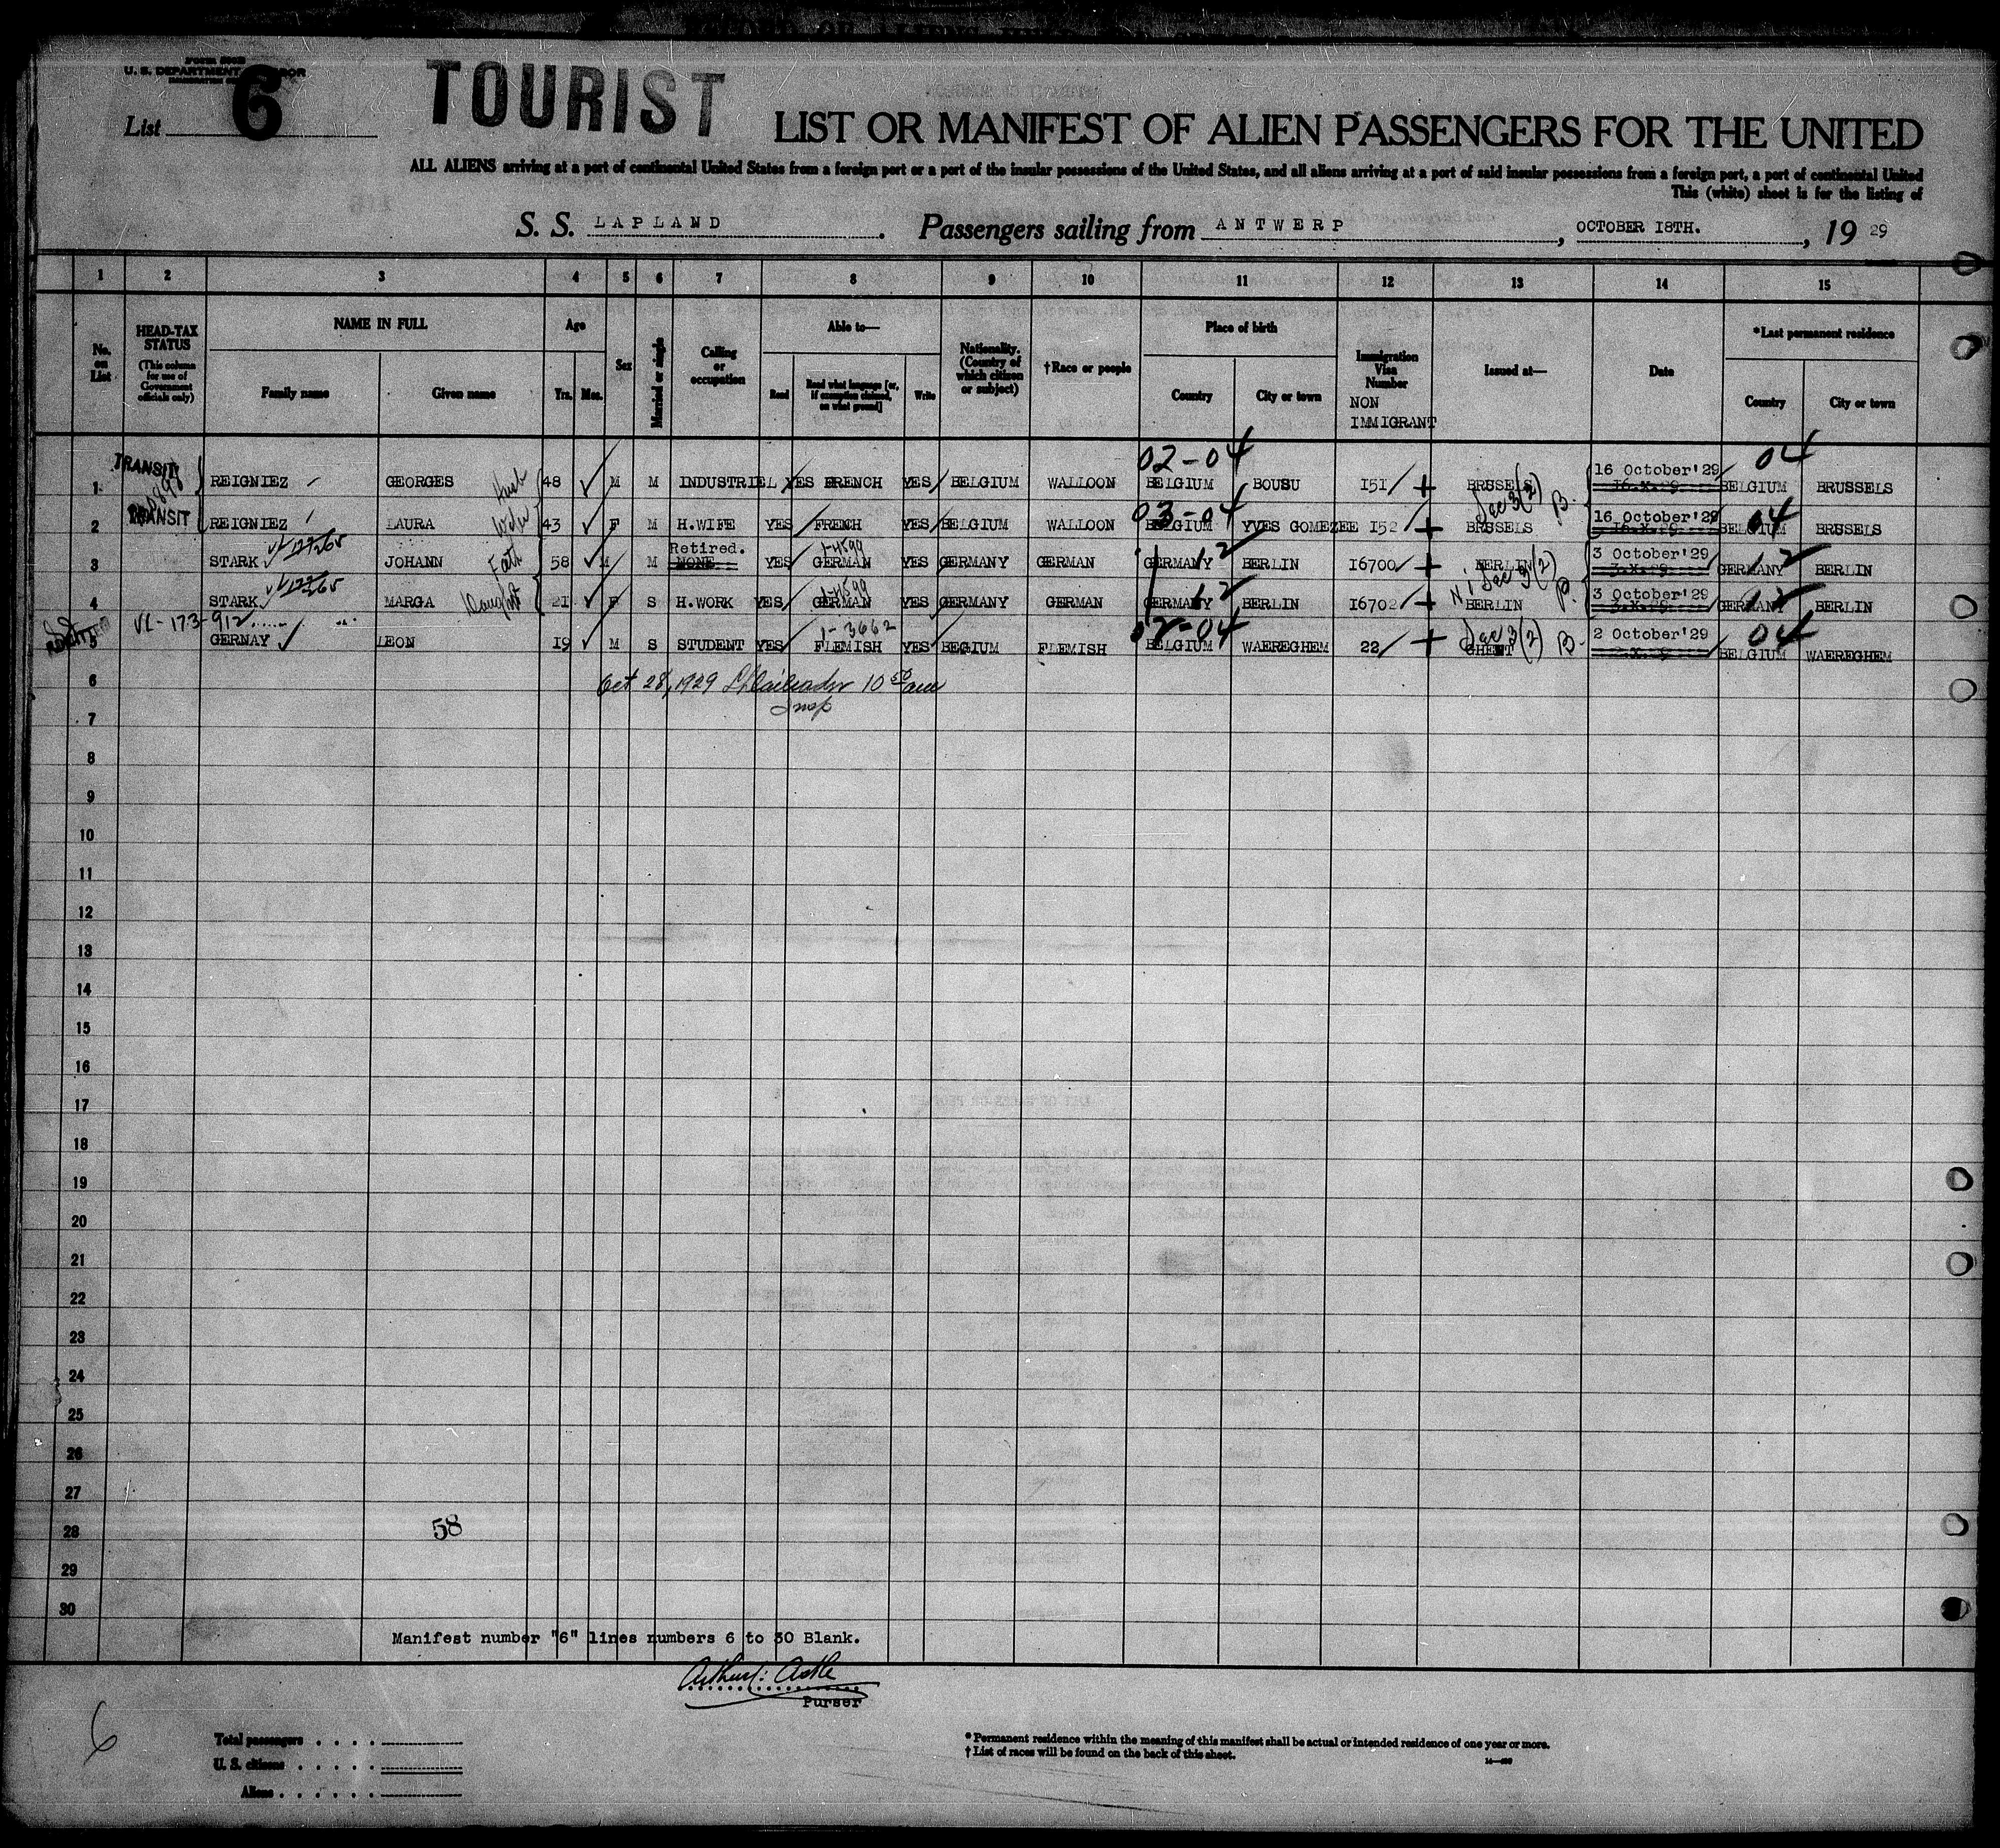 FORM 500B
U. S. DEPARTMENT OF LABOR
List 6
TOURIST
LIST OR MANIFEST OF ALIEN PASSENGERS FOR THE UNITED
ALL ALIENS arriving at a port of continental United States from a foreign port or a part of the insular possessions of the United States, and all aliens arriving at a port of said insular possessions from a foreign port, a part of continental United
This (white) sheet is for the listing of
S. S. LAPLAND. Passengers sailing from ANTWERP, OCTOBER I8TH., 19 29
1 2 3 4 5 6 7 8 9 10 11 12 13 14 15
No. on List
HEAD-TAX STATUS (This column for use of Government officials only)
NAME IN FULL
Family name Given name
Age
Yrs. Mos.
Sex
Married or single
Calling or occupation
Able to—
Read Read what language [or, if exemption claimed, on what ground] Write
Nationality. (Country of which citizen or subject)
†Race or people
Place of birth
Country City or town
Immigration Visa Number
NON IMMIGRANT
Issued at—
Date
*Last permanent residence
Country City or town
TRANSIT 02-04 16 October'29 04
1 REIGNIEZ GEORGES Husb 48 M M INDUSTRIEL YES FRENCH YES BELGIUM WALLOON BELGIUM BOUSU I5I BRUSSELS I6.X.29 BELGIUM BRUSSELS
TRANSIT 03-04 Sec 3(2) B. 16 October'29 04
2 REIGNIEZ LAURA Wife 43 F M H.WIFE YES FRENCH YES BELGIUM WALLOON BELGIUM YVES GOMEZEE I52 BRUSSELS I6.X.29 BELGIUM BRUSSELS
Retired. 1-4599 12 3 October'29 12
3 STARK JOHANN Fath 58 M M NONE YES GERMAN YES GERMANY GERMAN GERMANY BERLIN I6700 BERLIN 3.X.29 GERMANY BERLIN
1-4599 12 Sec 3(2) 3 October'29 12
4 STARK MARGA Daught 2I F S H.WORK YES GERMAN YES GERMANY GERMAN GERMANY BERLIN I6702 BERLIN 3.X.29 GERMANY BERLIN
VL-173-912 1-3662 02-04 Sec 3(2) B. 2 October'29 04
5 GERNAY LEON I9 M S STUDENT YES FLEMISH YES BEGIUM FLEMISH BELGIUM WAEREGHEM 22 GHENT 2.X.29 BELGIUM WAEREGHEM
6 Oct 28, 1929 10 50 am
Insp
7
8
9
10
11
12
13
14
15
16
17
18
19
20
21
22
23
24
25
26
27
28 58
29
30
Manifest number "6" lines numbers 6 to 30 Blank.
Purser
6
Total passengers
U. S. citizens
Aliens
* Permanent residence within the meaning of this manifest shall be actual or intended residence of one year or more.
† List of races will be found on the back of this sheet.